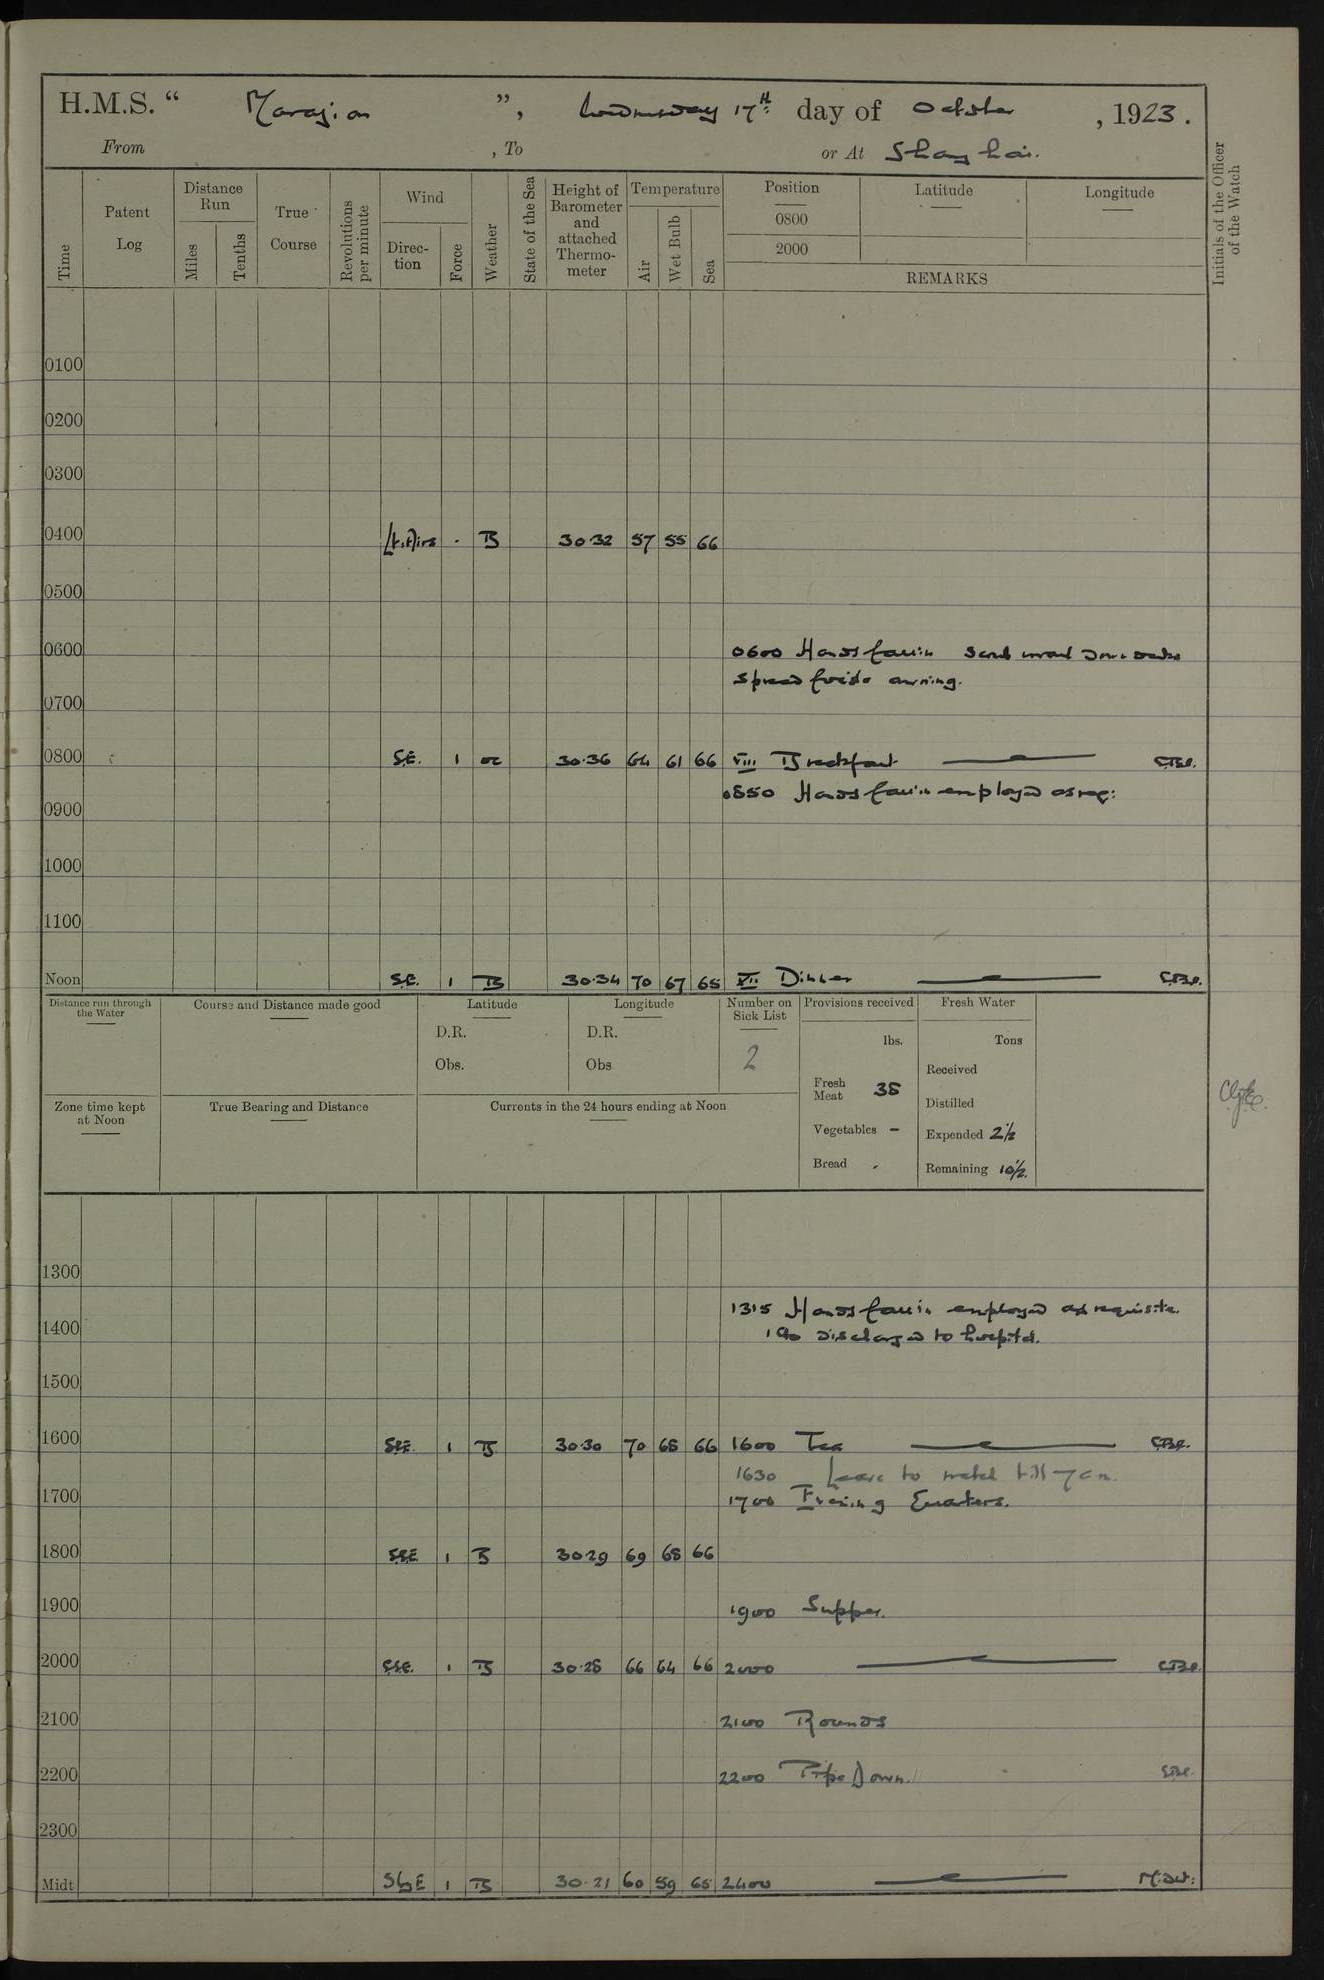 H.M.S. “ Marazion ”, Wednesday 17th day of October , 1923.
From , To or At Shanghai.
Time
Patent Log
Distance Run
Miles
Tenths
True Course
Revolutions per minute
Wind
Direc-tion
Force
Weather
State of the Sea
Height of Barometer and attached Thermo-meter
Temperature
Air
Wet Bulb
Sea
Position
0800
2000
Latitude
Longitude
REMARKS
Initials of the Officer of the Watch
0100
0200
0300
0400 Lt. Airs - B 30.32 57 55 66
0500
0600 0600 Hands fall in
spread awning.
0700
0800 S.E. 1 30.36 64 61 66 VIII Breakfast
0850 Hands fall in employed as req:
0900
1000
1100
Noon S.E. 1 B 30.34 70 67 65 XII Dinner
Distance run through the Water
Course and Distance made good
Latitude
D.R.
Obs.
Longitude
D.R.
Obs
Number on Sick List
2
Provisions received
lbs.
Fresh Meat 38
Vegetables -
Bread .
Fresh Water
Tons
Received
Distilled
Expended 2½
Remaining 10½.
Zone time kept at Noon
True Bearing and Distance
Currents in the 24 hours ending at Noon
1300
1315 Hands fall in employed as requisite.
1400 discharged to hospital.
1500
1600 SSE 1 B 30.30 70 68 66 1600 Tea
1630 Leave to watch till 7 a.m.
1700 1700 Evening Quarters.
1800 SSE 1 B 30.29 69 68 66
1900 1900 Supper.
2000 SSE. 1 B 30.28 66 64 66 2000
2100 2100 Rounds
2200 2200 Pipe Down.
2300
Midt SbyE 1 B 30.21 60 59 65 2400